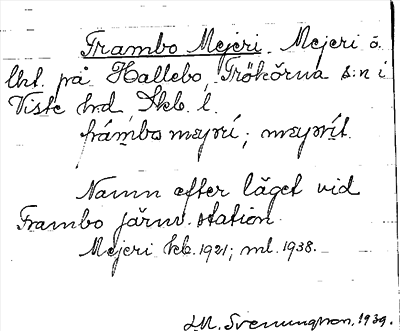 Frambo Mejeri. Mejeri å
lht. på Hallebo, Trökörna s:n i
Viste hrd, Skb. l.
frámbo mejrí; mejrít.
Namn efter läget vid
Frambo järnv. station.
Mejeri tkb. 1921; ml. 1938.
M. Svenungson, 1939.